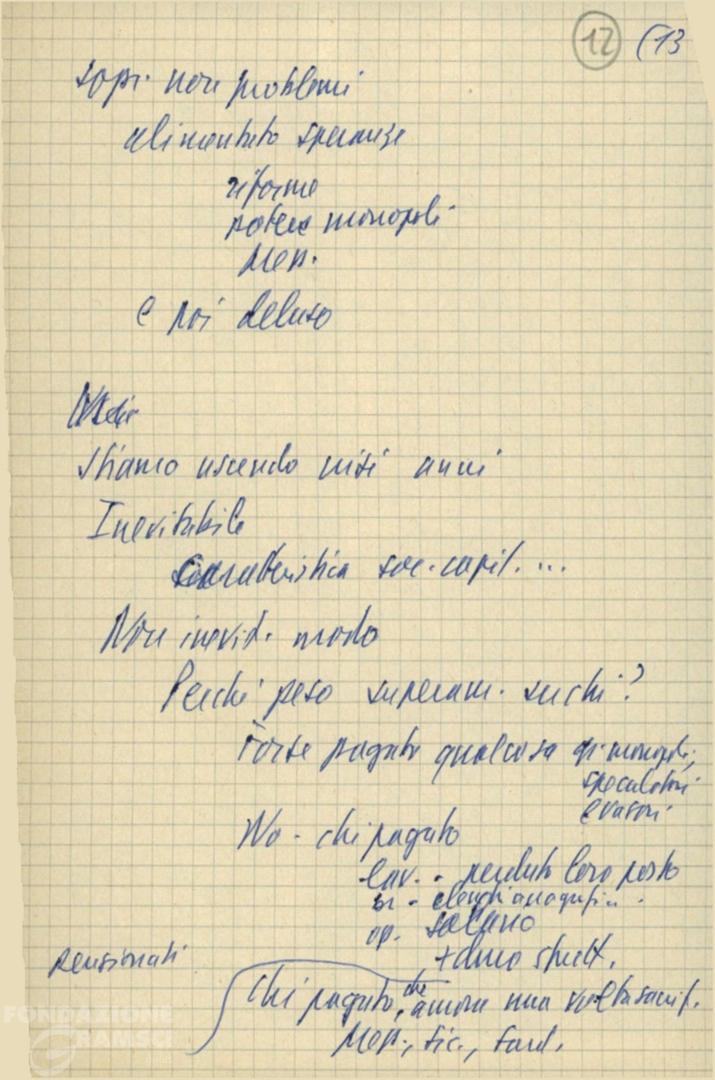 12 (13
sopr. non problemi
alimentato speranze
riforme
potere monopoli
Mer.
e poi deluso
Stiamo uscendo crisi anni
Inevitabile
caratteristica soc. capit. ...
Non inevit. modo
Perché peso superam. su chi?
Forse pagato qualcosa monopoli,
speculatori
evasori
No - chi pagato
lav. - perduto loro posto
elenchi anagrafici
op. salario
+ duro sfrutt.
pensionati
Chi pagato, che ancora una volta sacrif.
Mer., Sic., Sard.
FONDAZIONE
GRAMSCI